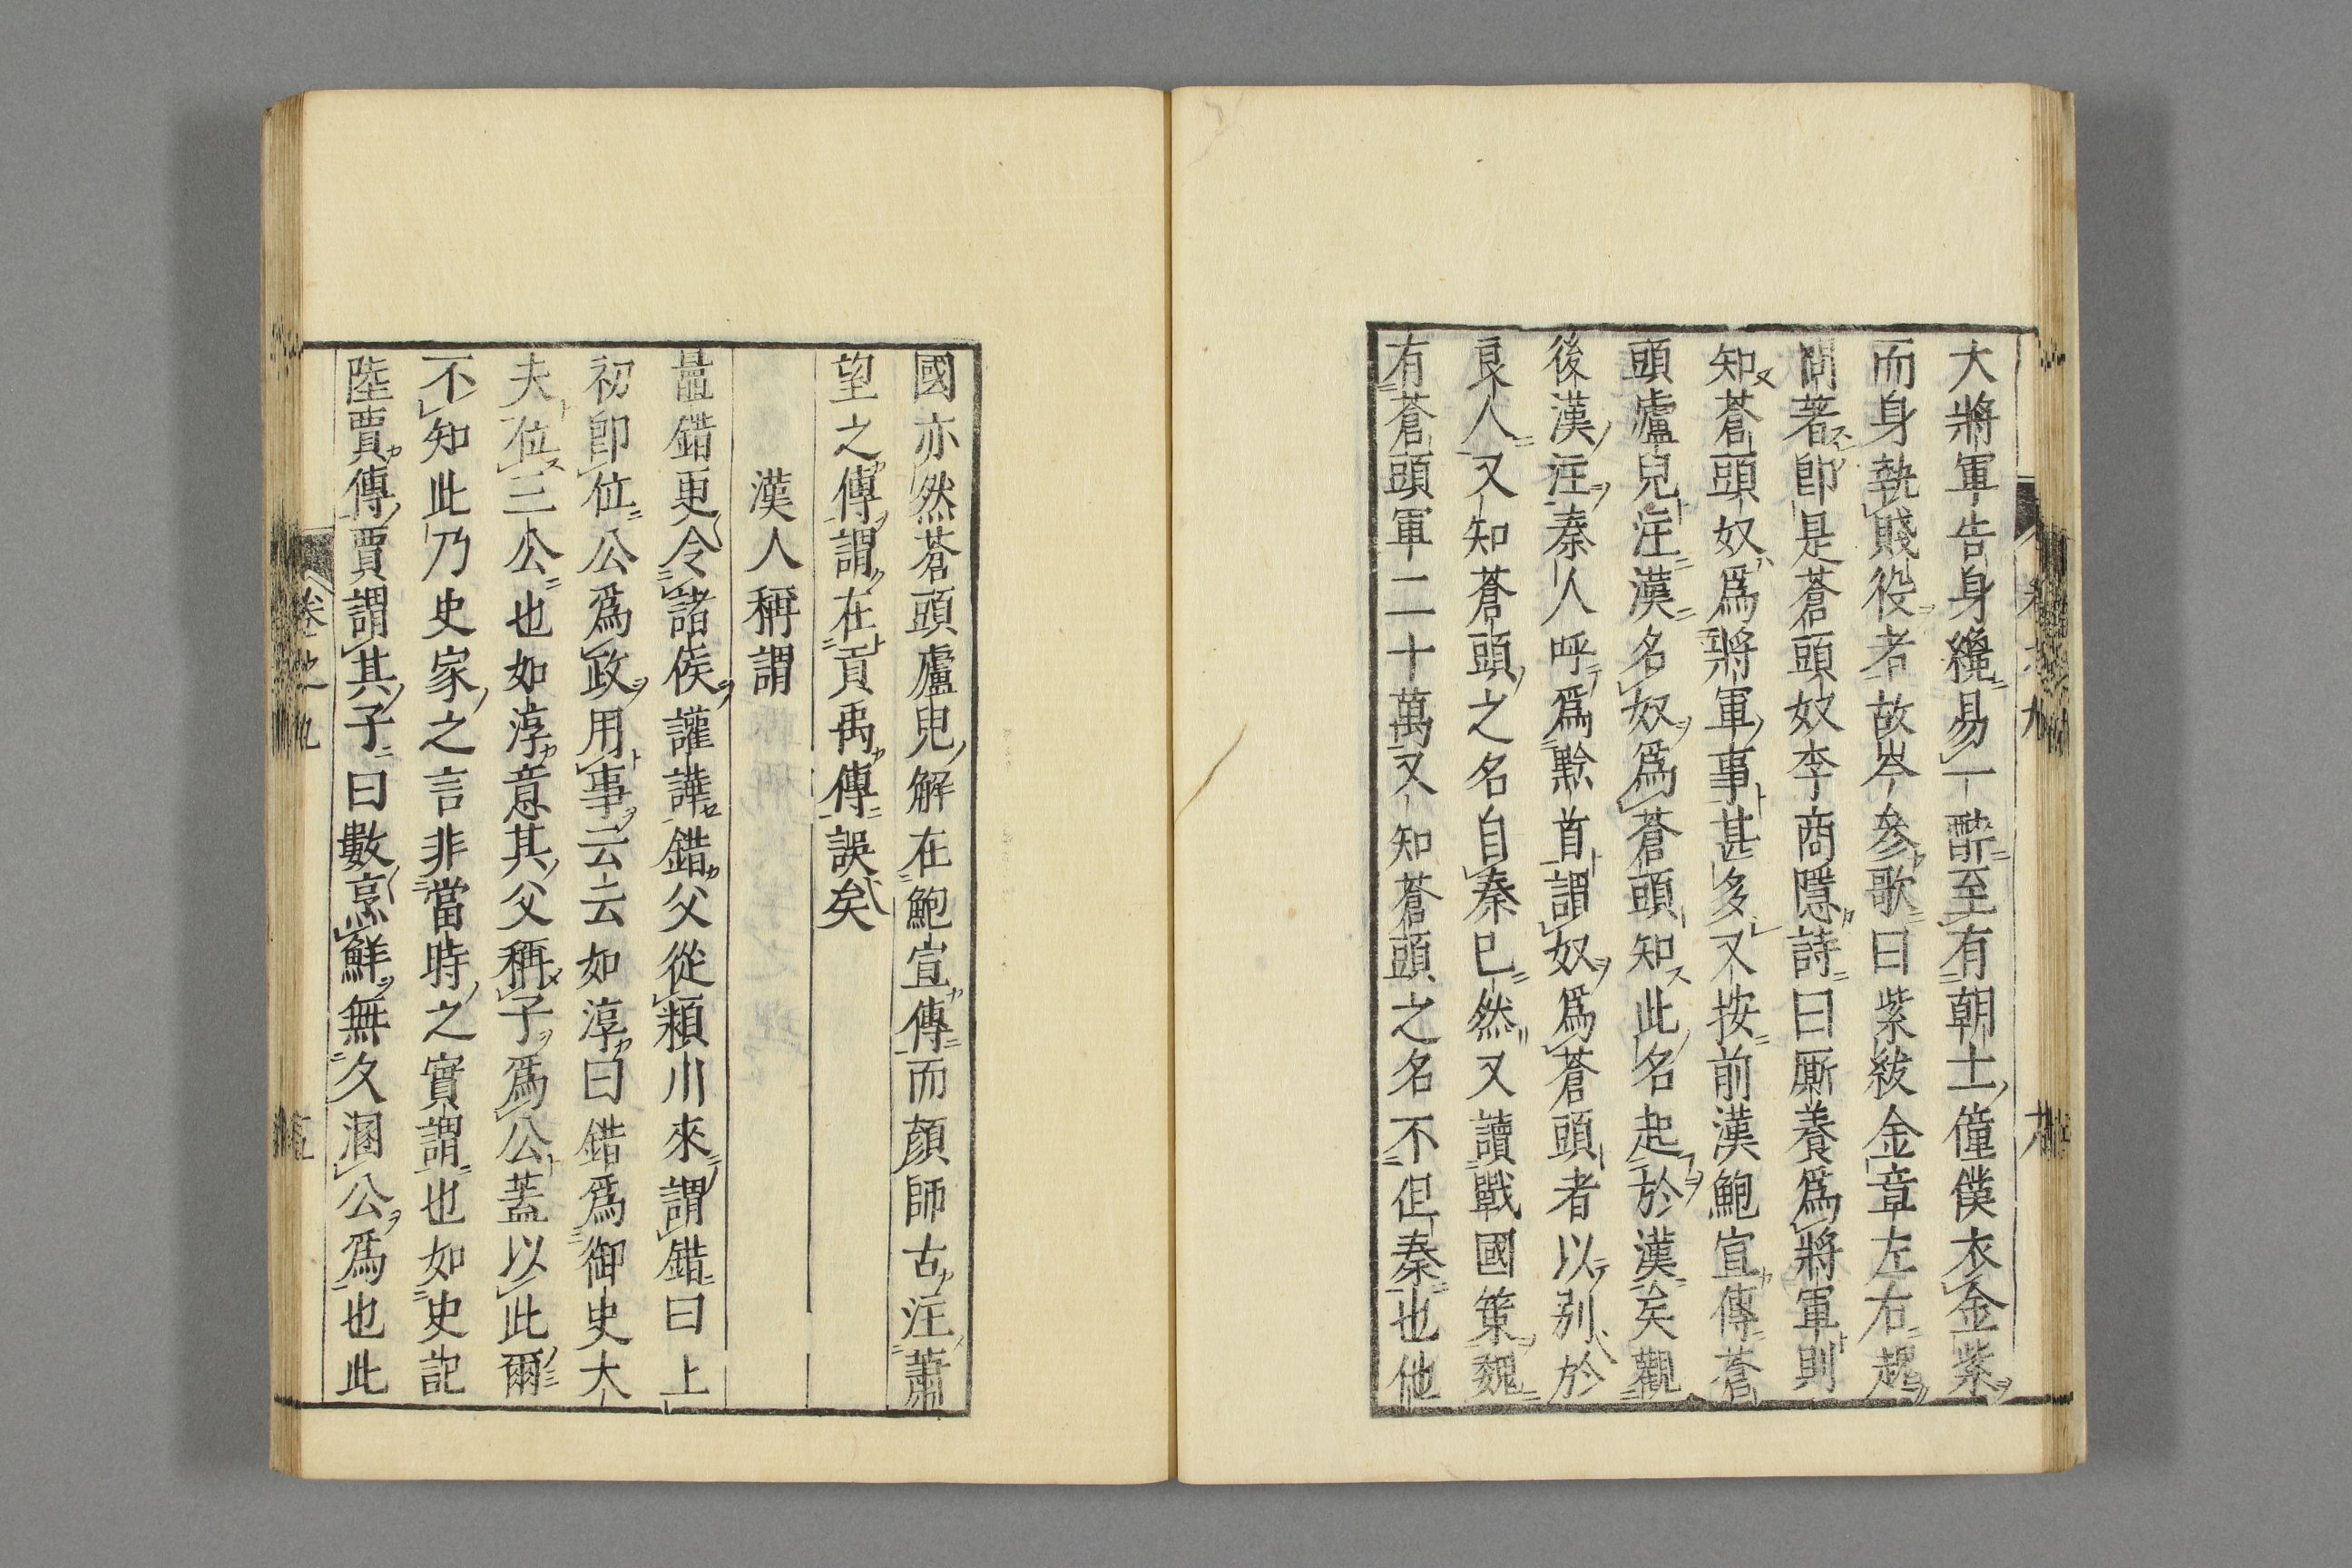 大將軍告身纔易一醉至有朝士僮僕衣金紫
而身執賤役者故岑參歌曰紫紱金章左右趨
問著卽是蒼頭奴李商隱詩曰厮養爲將軍則
知蒼頭奴爲將軍事甚多又按前漢鮑宣傳蒼
頭盧兒注漢名奴爲蒼頭知此名起於漢矣觀
後漢注秦人呼爲黔首謂奴爲蒼頭者以别於
良人又知蒼頭之名自秦已然又讀戰國策魏
有蒼頭軍二十萬又知蒼頭之名不但秦也他
國亦然蒼頭盧兒解在鮑宣傳而顏師古注蕭
望之傳謂在貢禹傳誤矣
漢人稱謂
鼂錯更令諸侯讙譁錯父從潁川來謂錯曰上
初卽位公爲政用事云云如淳曰錯爲御史大
夫位三公也如淳意其父稱子爲公蓋以此爾
不知此乃史家之言非當時之實謂也如史記
陸賈傳賈謂其子曰數烹鮮無久溷公爲也此
卷之九